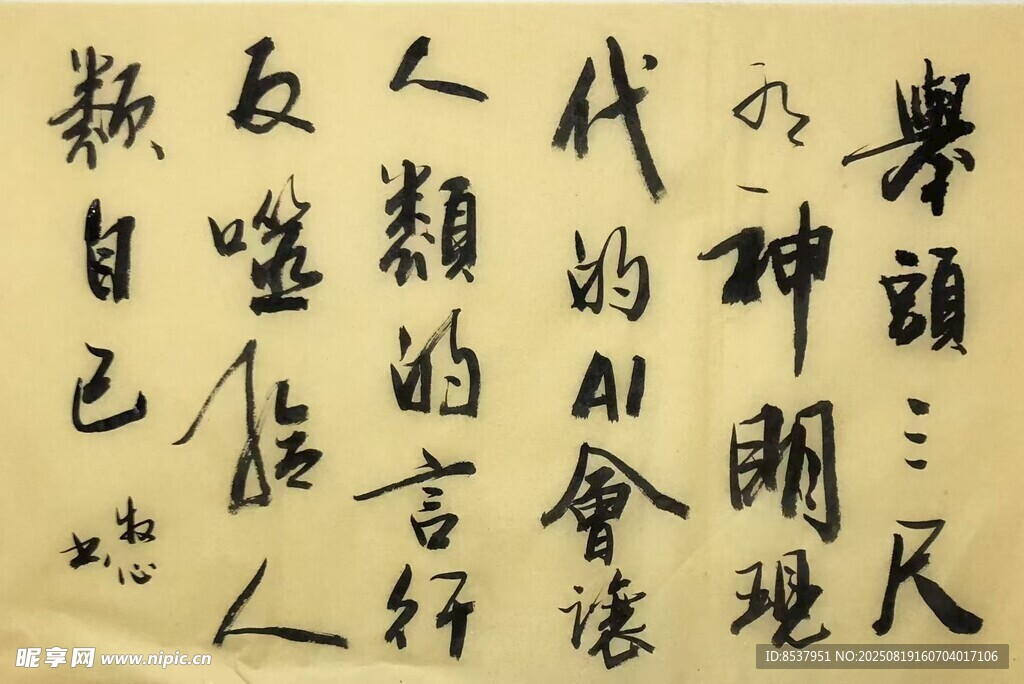 舉頭三尺
有神明現
代的AI會讓
人類的言行
反噬給人
類自己
牧心
书
昵享网 www.nipic.cn
ID:8537951 NO:20250819160704017106